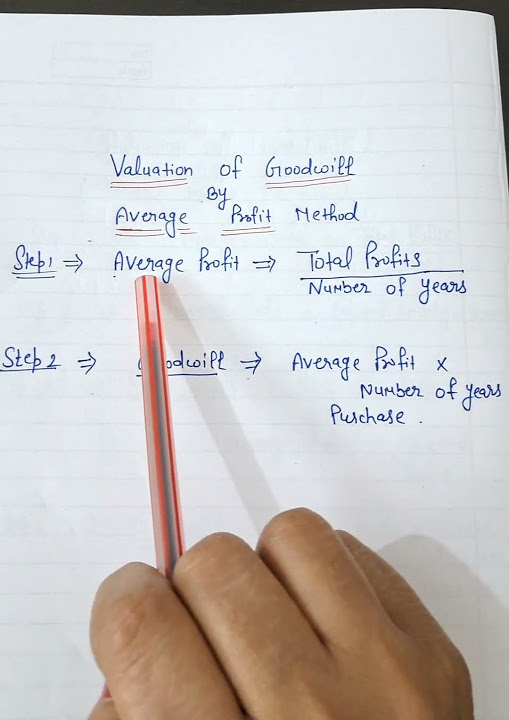 Valuation of Goodwill
By
Average Profit Method
Step1 ⇒ Average Profit ⇒ Total Profits
Number of years
Step2 ⇒ Goodwill ⇒ Average Profit ×
Number of years
Purchase .